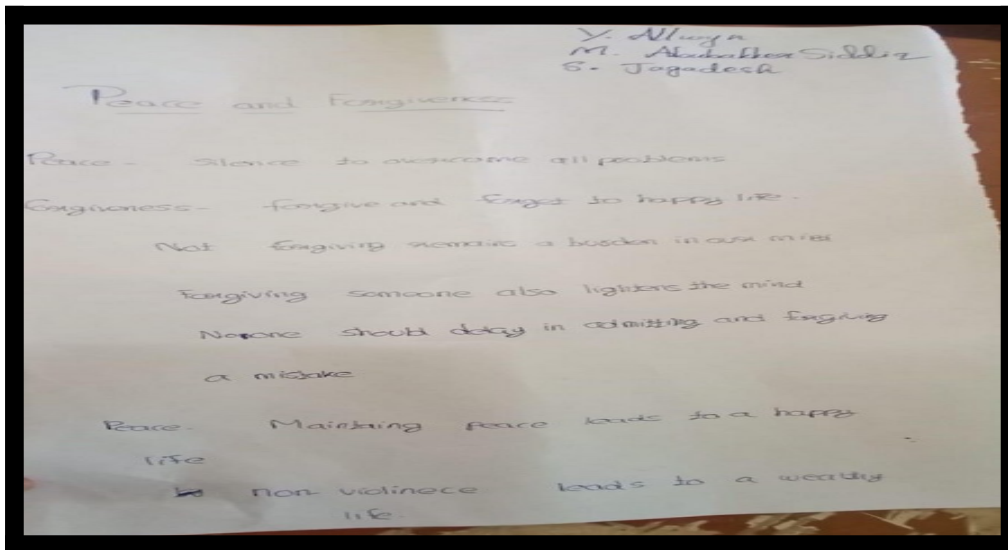 Y. Allwyn
M. Abubakker Siddiq
S. Jagadesh
Peace and Forgiveness
Peace - Silence to overcome all problems
Forgiveness - forgive and forget to happy life.
Not forgiving remains a burden in our mind
Forgiving someone also lightens the mind
No one should delay in admitting and forgiving
a mistake
Peace - Maintaing peace leads to a happy
life
non violinece leads to a wealthy
life.